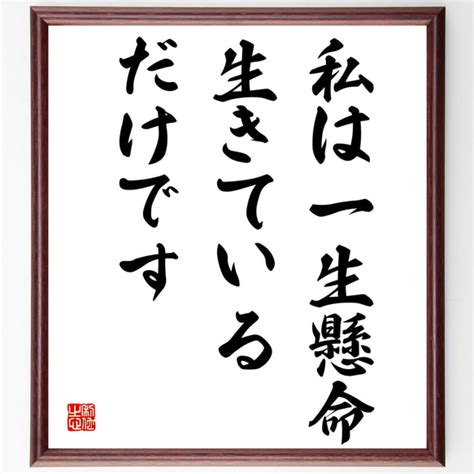 私は一生懸命
生きている
だけです